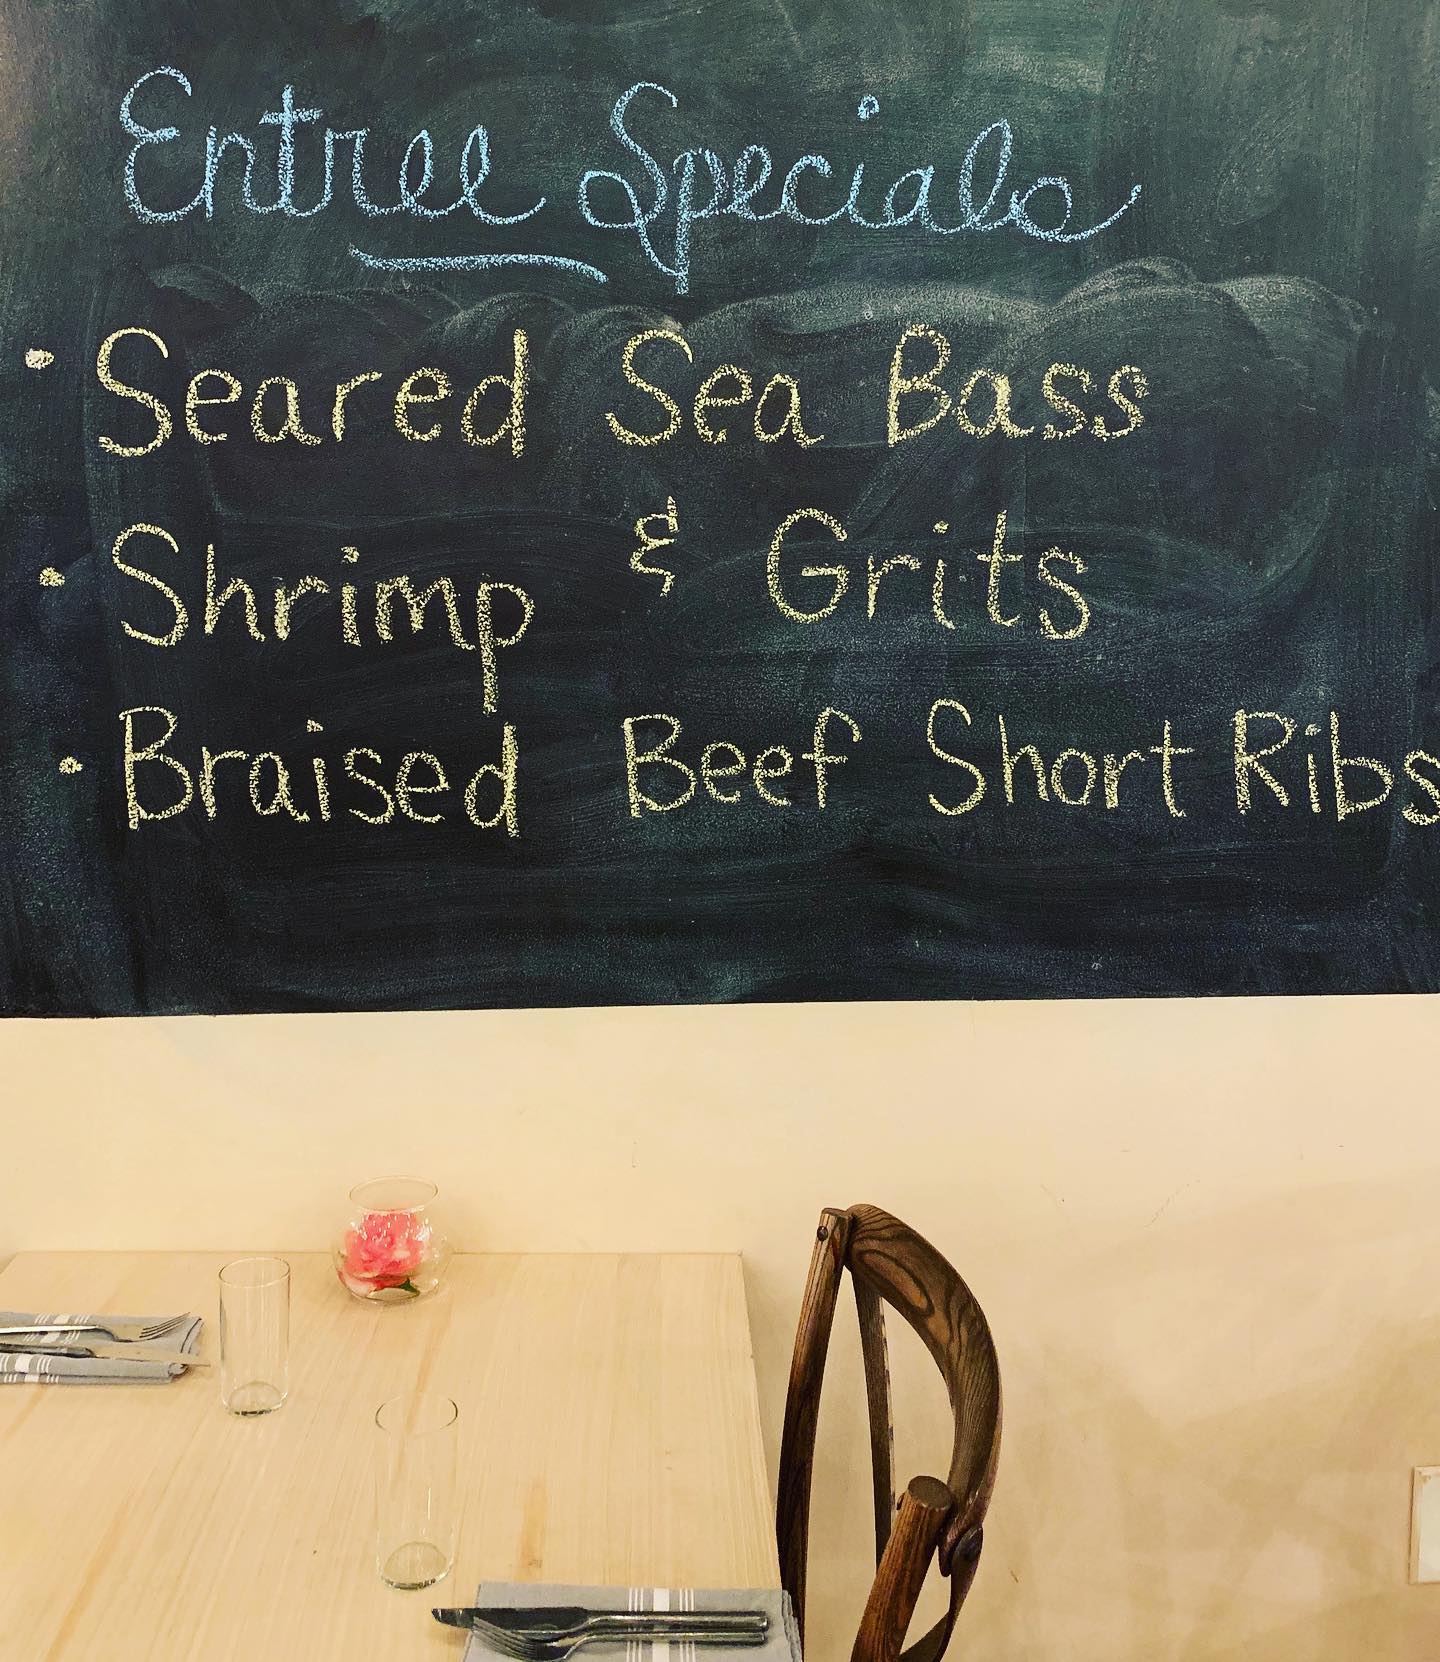 Entree Specials
• Seared Sea Bass
• Shrimp & Grits
• Braised Beef Short Ribs